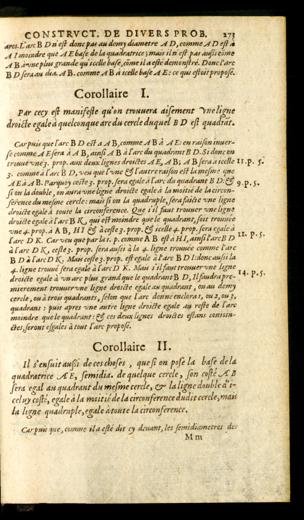 CONSTRVCT. DE DIVERS PROB. 273
ares. L'arc B D n'est donc pas au demy diametre A D, comme A D est à
A I moindre que A E base de la quadratrice; mais il n'est pas aussi cõme
A B à vne plus grande qu'icelle base, cõme il a esté demonstré. Donc l'arc
B D sera au dia. A B. comme A B à icelle base A E: ce qui estoit proposé.
Corollaire I.
Par cecy est manifeste qu'on trouuera aisement vne ligne
droicte egale à quelconque arc du cercle duquel B D est quadrãt.
Car puis que l'arc B D est à A B, comme A B à A E: en raison inuer-
se comme A E sera à A B, ainsi A B à l'arc du quadrant B D. Si donc on
trouue vne 3. prop. aux deux lignes droictes A E, A B; A B sera à icelle 11. p. 5.
3. comme à l'arc B D, veu que l'vne & l'autre raison est la mesme que
A E à A B. Parquoy ceste 3. prop. sera egale à l'arc du quadrant B D. & 9. p. 5.
si on la double, on aura vne ligne droicte egale à la moitié de la circon-
ference du mesme cercle: mais si on la quadruple, sera faicte vne ligne
droicte egale à toute la circonference. Que s'il faut trouuer vne ligne
droicte egale à l'arc B K, qui est moindre que le quadrant, soit trouuée
vne 4. prop. à A B, H I & à ceste 3. prop. & icelle 4. prop. sera egale à
l'arc D K. Car veu que par la 1. p. comme A B est à H I, ainsi l'arc B D 11. p. 5.
à l'arc D K, ceste 3. prop. sera aussi à la 4. ligne trouuée comme l'arc
B D à l'arc D K. Mais ceste 3. prop. est egale à l'arc B D: donc aussi la
4. ligne trouué sera egale à l'arc D K. Mais s'il faut trouuer vne ligne 14. p. 5.
droicte egale à vn arc plus grand que le quadrant B D, il faudra pre-
mierement trouuer vne ligne droicte egale au quadrant, ou au demy
cercle, ou à trois quadrants, selon que l'arc donné enclora 1, ou 2, ou 3,
quadrans: puis apres vne autre ligne droicte egale au reste de l'arc
moindre que le quadrant: & ces deux lignes droictes estans conioin-
ctes, seront esgales à tout l'arc proposé.
Corollaire II.
Il s'ensuit aussi de ces choses, que si on pose la base de la
quadratrice A E, semidia. de quelque cercle, son costé A B
sera egal au quadrant du mesme cercle, & la ligne double d'i-
celuy costé, egale à la moitié de la circonference dudit cercle, mais
la ligne quadruple, egale à toute la circonference.
Car puis que, comme il a esté dit cy deuant, les semidiametres des
M m